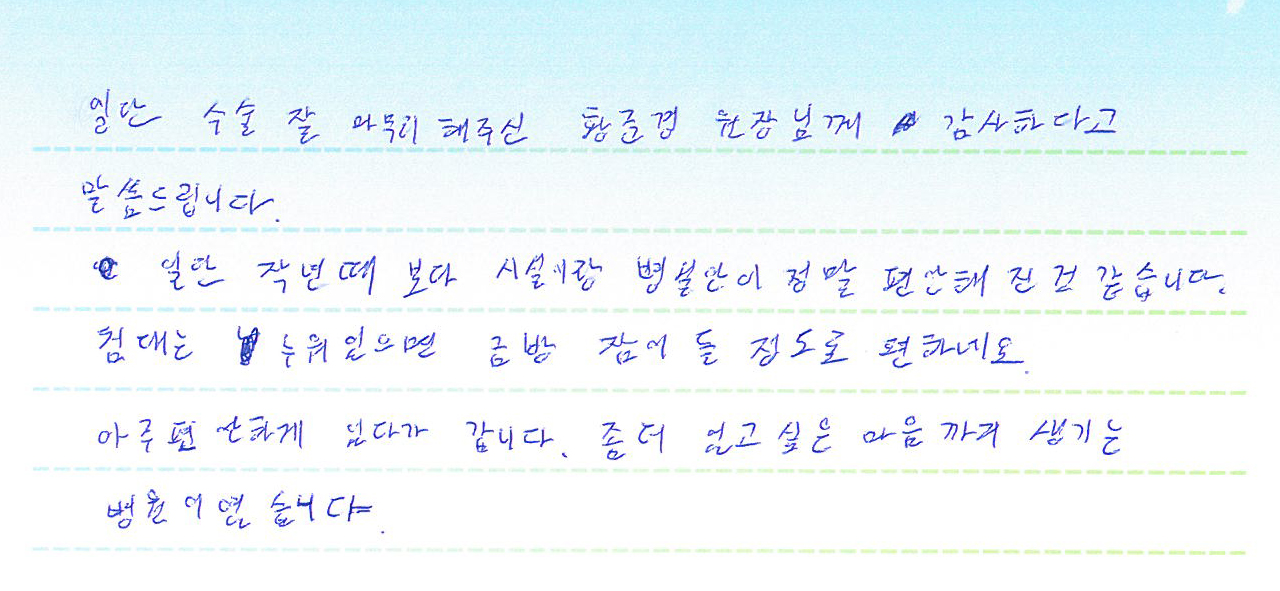 일단 수술 잘 마무리 해주신 황준경 원장님께 감사하다고
말씀드립니다.
일단 작년때 보다 시설이랑 병실안이 정말 편안해 진 것 같습니다.
침대는 누워있으면 금방 잠이 들 정도로 편하네요.
아주편안하게 있다가 갑니다. 좀더 있고싶은 마음까지 생기는
병원이였습니다.